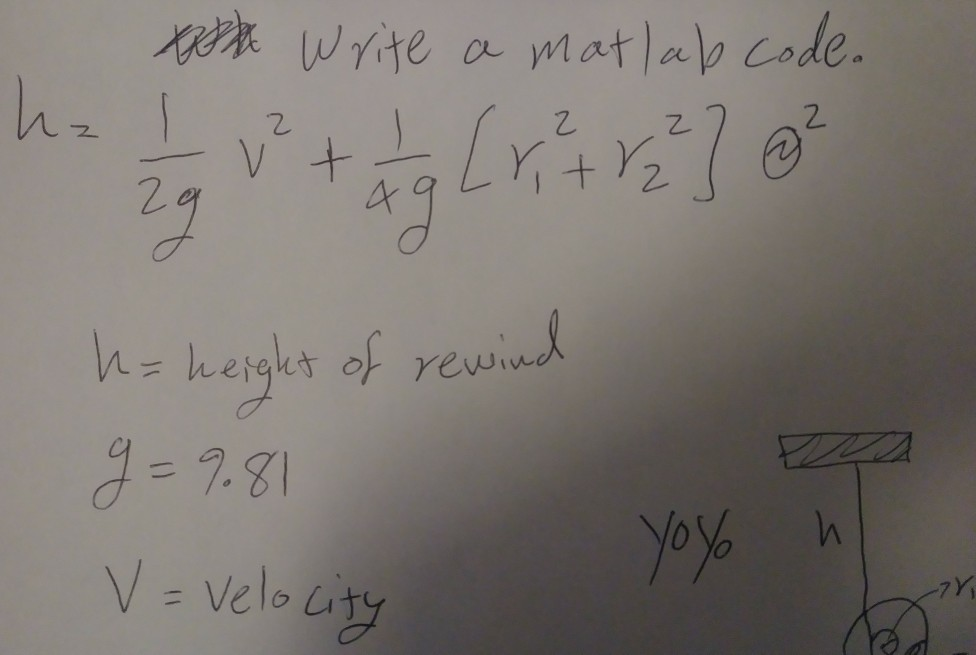 Write a matlab code.
h = 1/2g v² + 1/4g [r₁² + r₂²] ²
h = height of rewind
g = 9.81
V = velocity
yoyo h
r₁